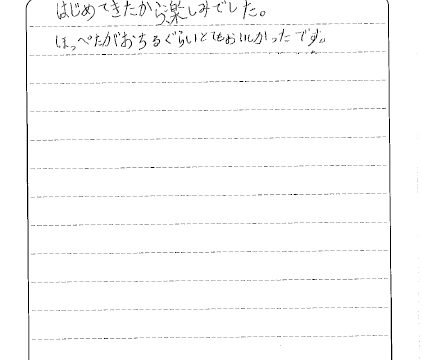 はじめてきたから楽しみでした。
ほっぺたがおちるぐらいとてもおいしかったです。